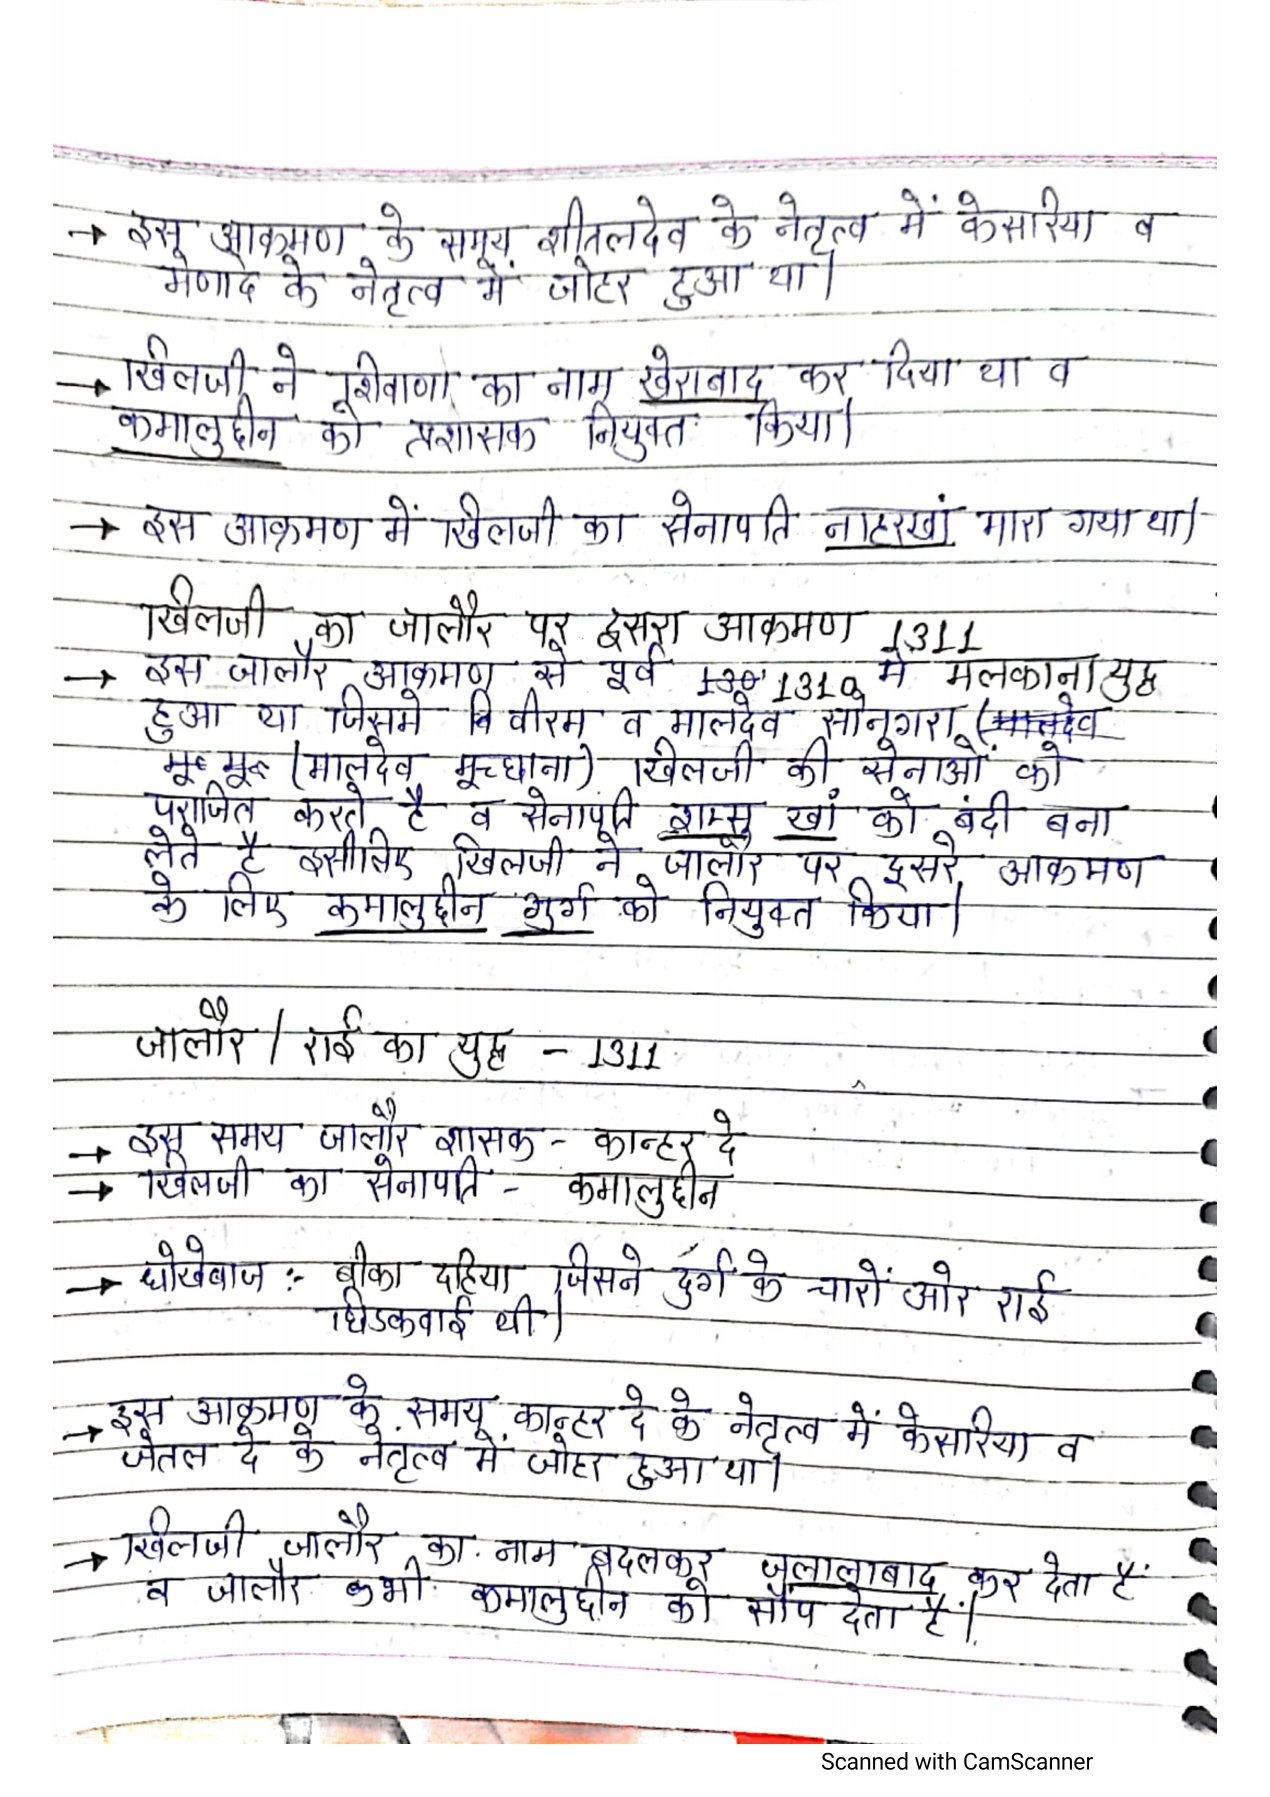 → इस आक्रमण के समय शीतलदेव के नेतृत्व में केसरिया व
मेणादे के नेतृत्व में जोहर हुआ था।
→ खिलजी ने शिवाणा का नाम खेराबाद कर दिया था व
कमालुद्दीन को प्रशासक नियुक्त किया।
→ इस आक्रमण में खिलजी का सेनापति नाहरखां मारा गया था।
खिलजी का जालौर पर दूसरा आक्रमण 1311
→ इस जालौर आक्रमण से पूर्व 1310 में मलकाना युद्ध
हुआ था जिसमे वीरम व मालदेव सोनगरा
(मालदेव मूच्छाना) खिलजी की सेनाओं को
पराजित करते है व सेनापति शम्सु खां को बंदी बना
लेते है इसीलिए खिलजी ने जालौर पर दूसरे आक्रमण
के लिए कमालुद्दीन गुर्ग को नियुक्त किया।
जालौर / राई का युद्ध - 1311
→ इस समय जालौर शासक - कान्हर दे
→ खिलजी का सेनापति - कमालुद्दीन
→ धोखेबाज :- बीका दहिया जिसने दुर्ग के चारों ओर राई
छिडकवाई थी।
→ इस आक्रमण के समय कान्हर दे के नेतृत्व में केसरिया व
जेतल दे के नेतृत्व में जोहर हुआ था।
→ खिलजी जालौर का नाम बदलकर जलालाबाद कर देता है
व जालौर कभी कमालुद्दीन को सौंप देता है।
Scanned with CamScanner